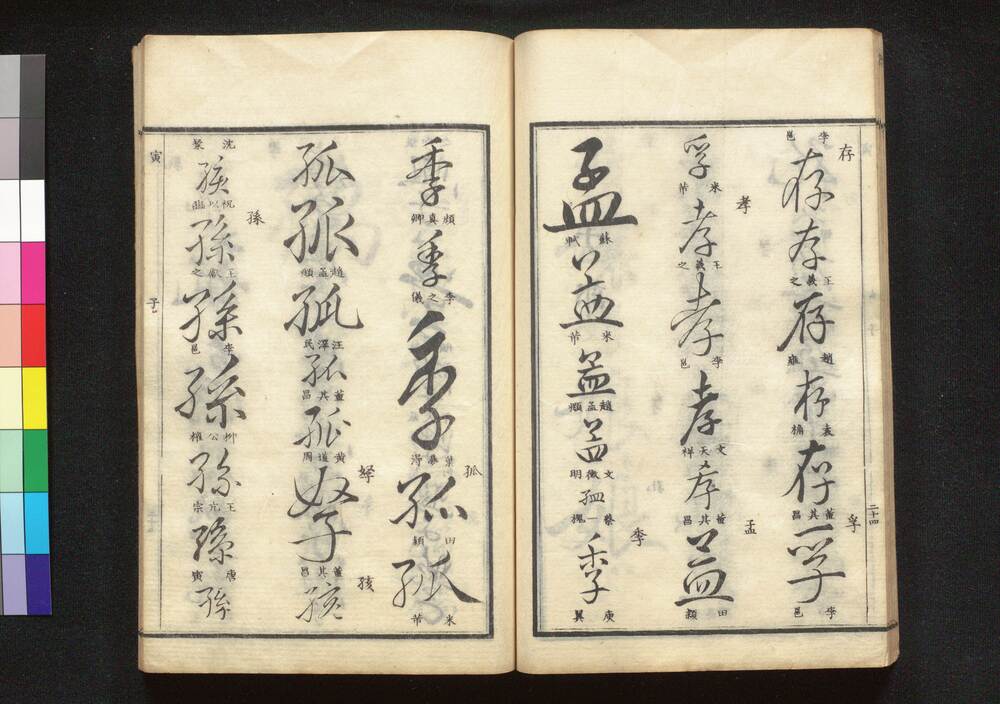 二十四
存
孚
李邕
存
存
王羲之
存
趙雍
存
袁桷
存
董其昌
孚
李邕
孝
孟
孚
米芾
孝
王羲之
孝
李邕
孝
文天祥
孝
董其昌
孟
田穎
季
孟
蘇軾
孟
米芾
孟
趙孟頫
孟
文徵明
孟
蔡一槐
季
庾翼
孤
季
顏真卿
季
李之儀
季
孤
田穎
孤
米芾
孥
孩
孤
孤
趙孟頫
孤
汪澤民
孤
董其昌
孤
黃道周
孥
董其昌
孩
孫
沈粲
孩
孫
王獻之
孫
李邕
孫
柳公權
孫
王亢宗
孫
唐寅
孫
寅
子